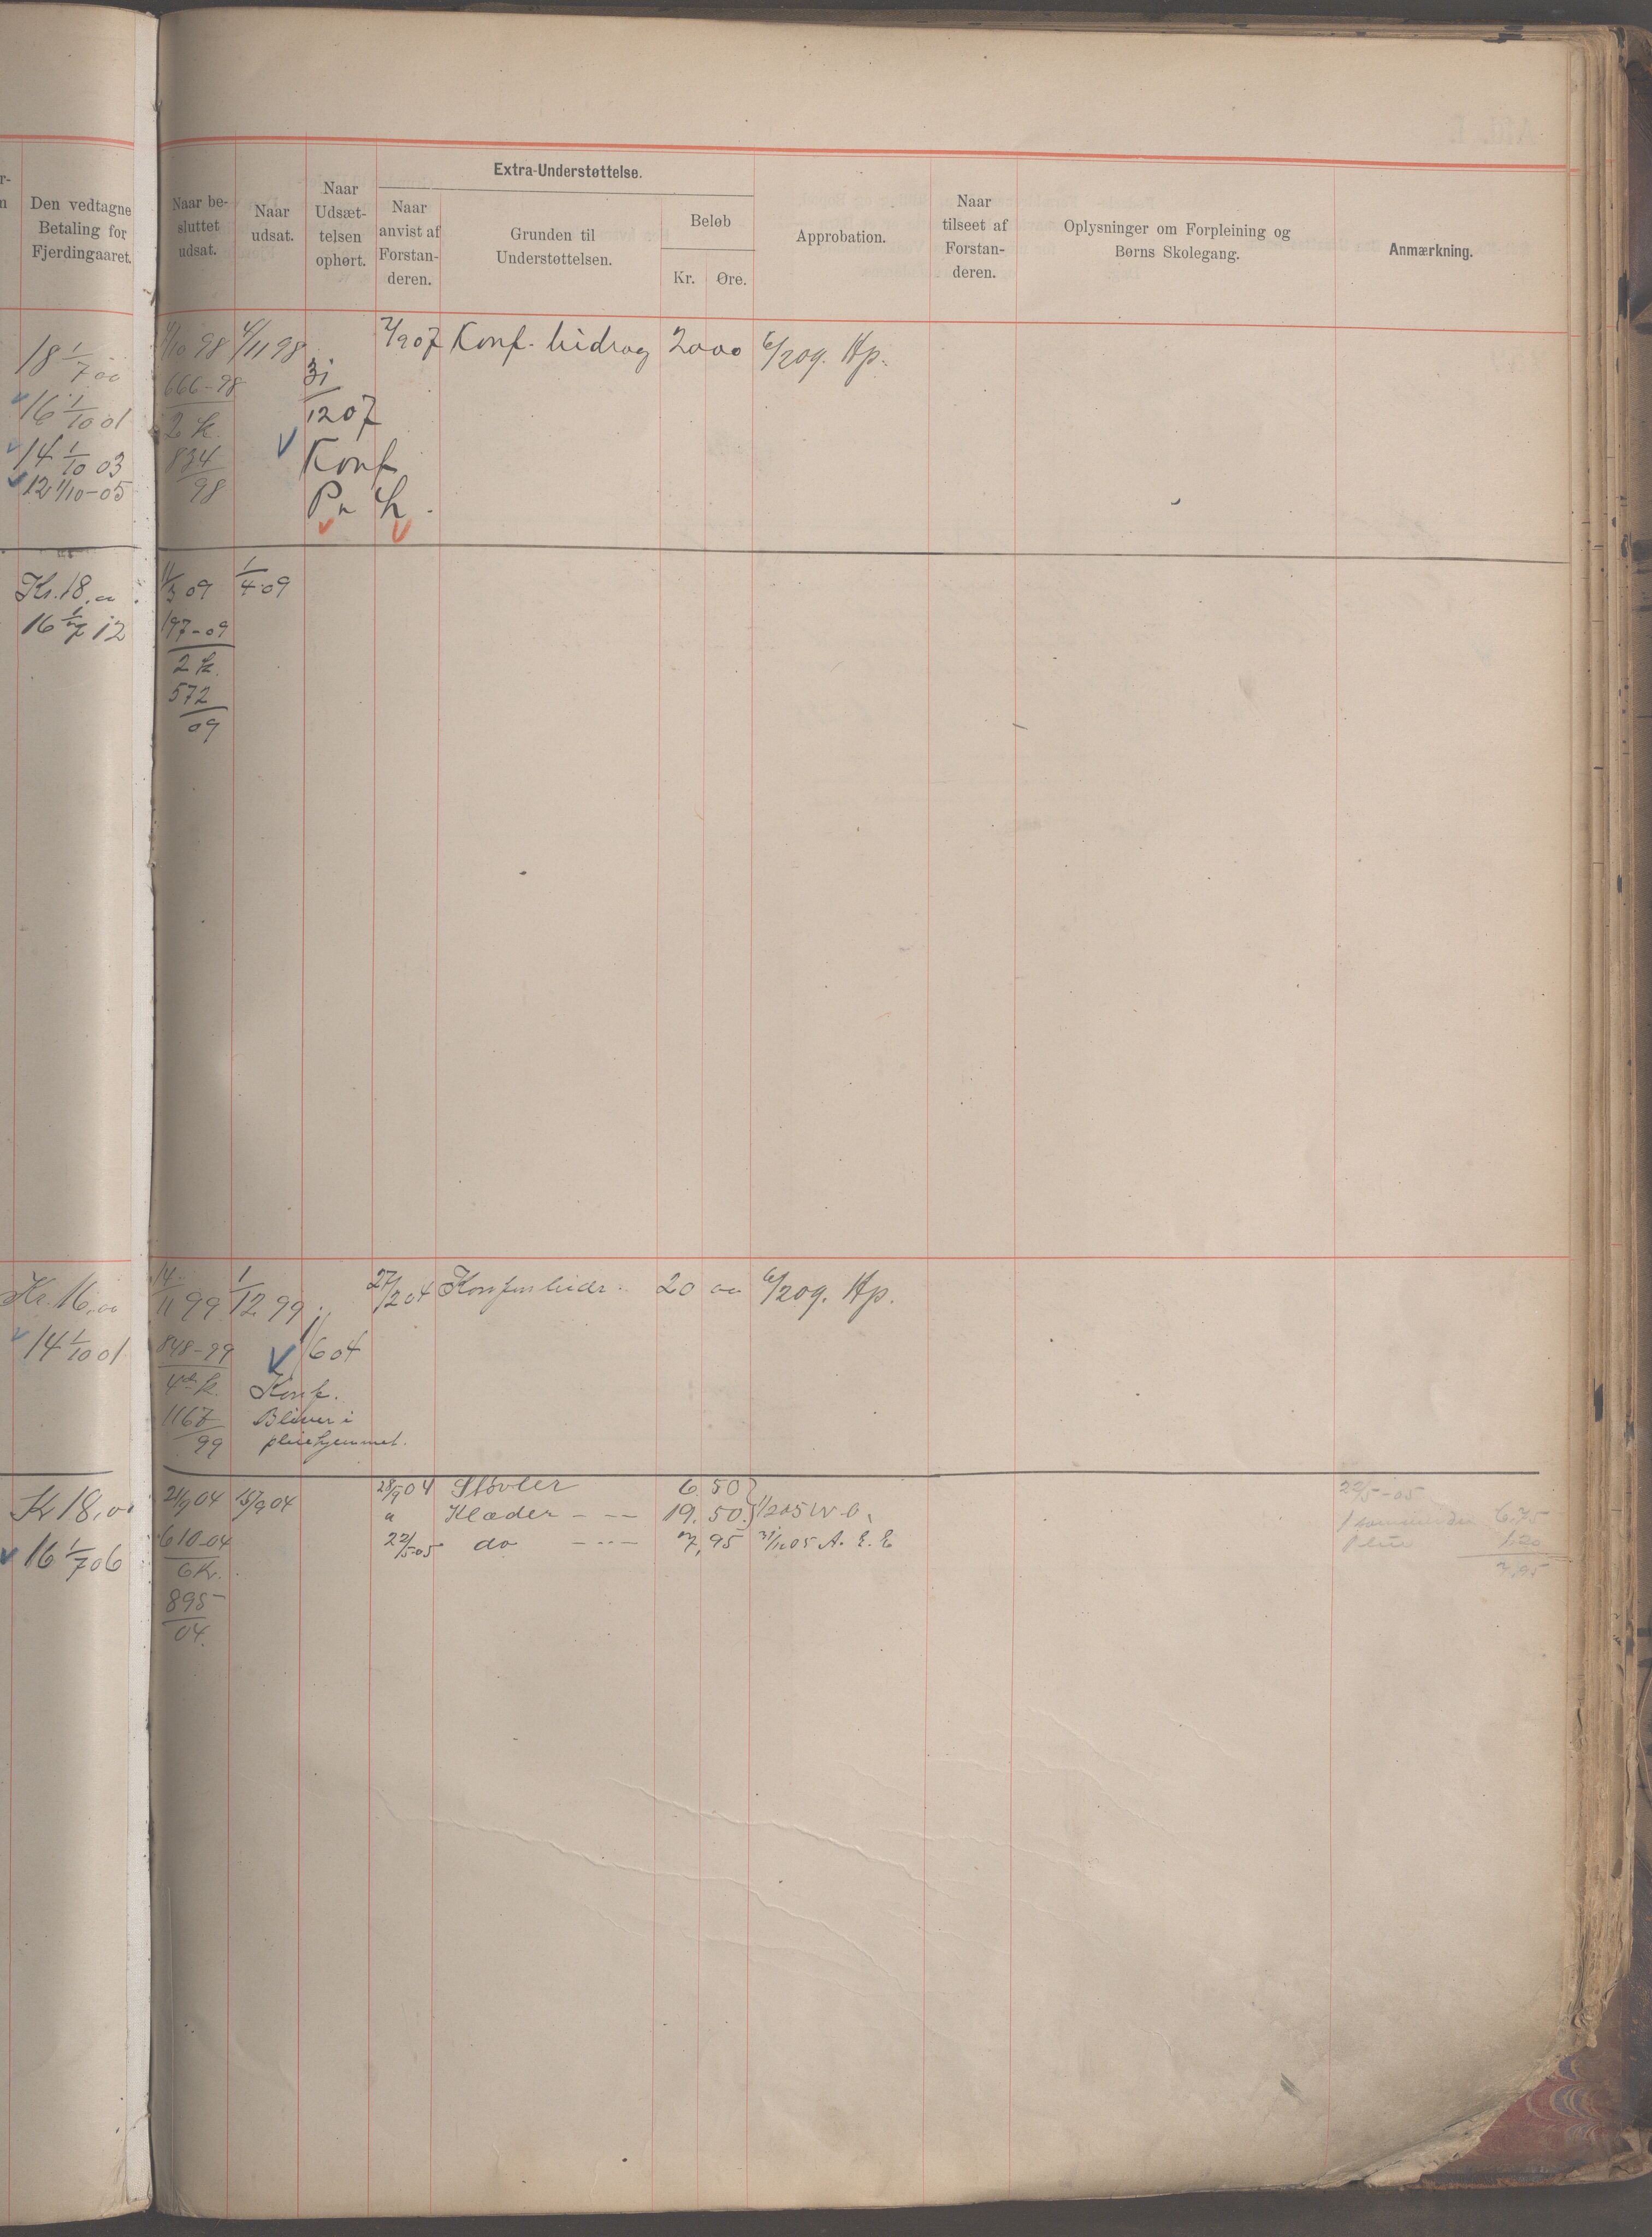 Den vedtagne
Betaling for
Fjerdingaaret.
Naar be-
sluttet
udsat.
Naar
udsat.
Naar
Udsæt-
telsen
ophørt.
Extra-Understøttelse.
Naar
anvist af
Forstan-
deren.
Grunden til
Understøttelsen.
Beløb
Kr. Øre.
Approbation.
Naar
tilseet af
Forstan-
deren.
Oplysninger om Forpleining og
Børns Skolegang.
Anmærkning.
18 1/7 00
16 1/10 01
14 1/10 03
12 1/10-05
4/10 98 4/11 98
666-98
2 k.
834
98
31
12 07
Konf
2/9 07 Konf. bidrag 20 00 6/2 09. Hp.
Kr. 18.00
16 1/7 12
11/3 09 1/4 09
197-09
2 k.
572
09
Kr. 16.00
14 1/10 01
14/11 99 1/12 99
848-99
4de k.
1167
99
1/6 04
Konf.
Bliver i
pleiehjemmet.
27/2 04 Konfm bidr. 20 00 6/2 09. Hp.
Kr 18.00
16 1/7 06
21/9 04 15/9 04
610-04
6 k.
895
04.
28/9 04 Støvler 6.50
" Klæder --- 19.50
22/5-05 do --- 7,95 31/12 05 A. E. E.
22/5-05
6.75
1.20
7,95